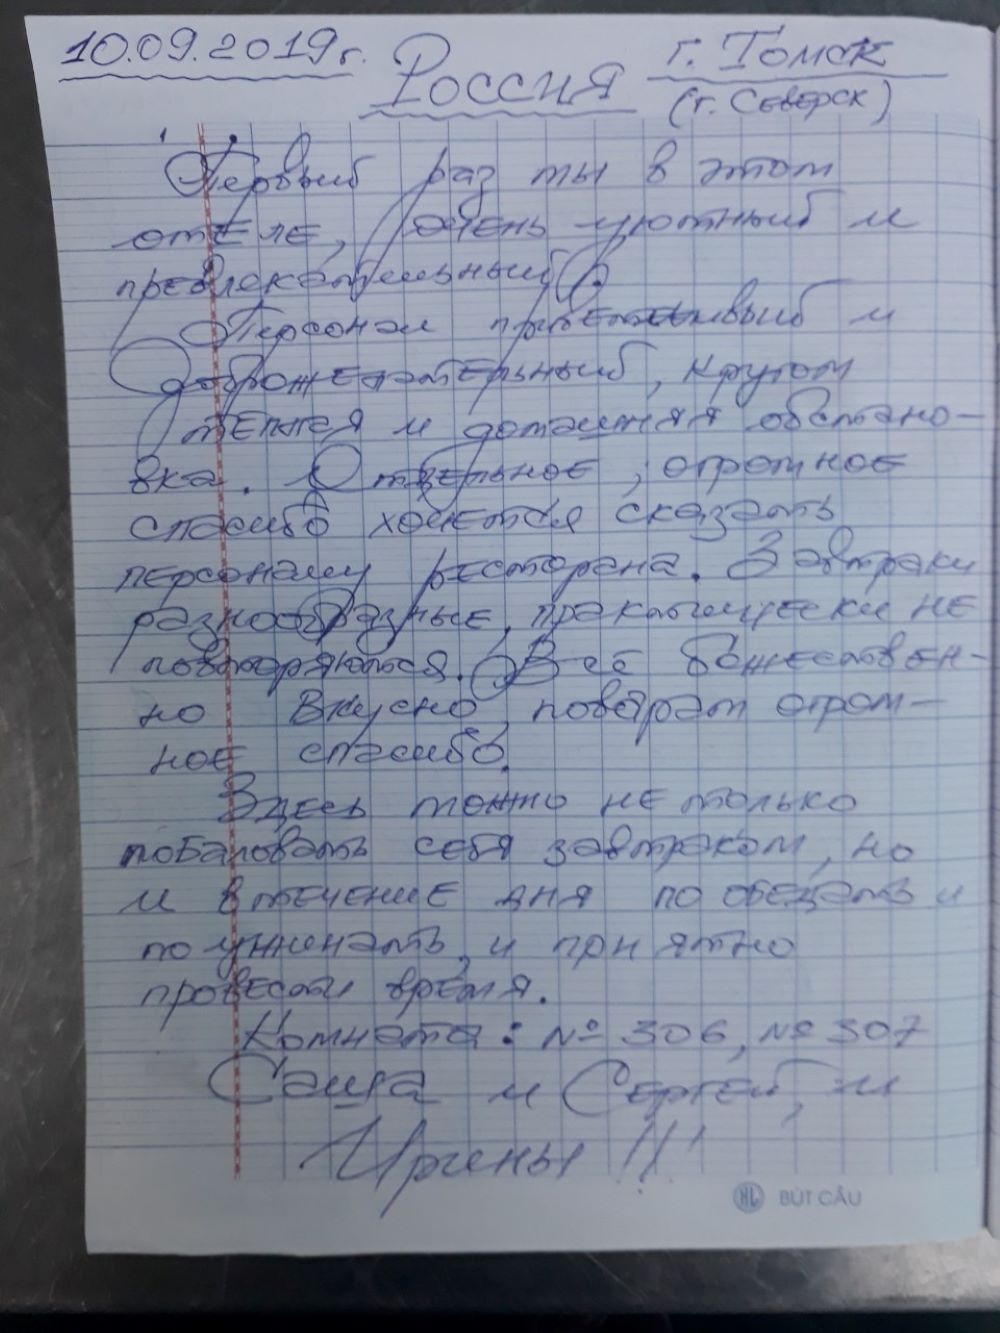 10.09.2019г. Россия г. Томск
(г. Северск)
Первый раз мы в этом
отеле, очень уютный и
превлекательный.
Персонал приветливый и
доброжелательный, кругом
тёплая и домашняя обстано-
вка. Отдельное, огромное
спасибо хочется сказать
персоналу ресторана. Завтраки
разнообразные, практически не
повторяются. Всё божествен-
но вкусно, поварам огром-
ное спасибо.
Здесь можно не только
побаловать себя завтраком, но
и в течение дня по обедать и
по ужинать, и приятно
провести время.
Комната: № 306, № 307
Саша и Сергей, и
Ирины!!!
BÚT CÂU